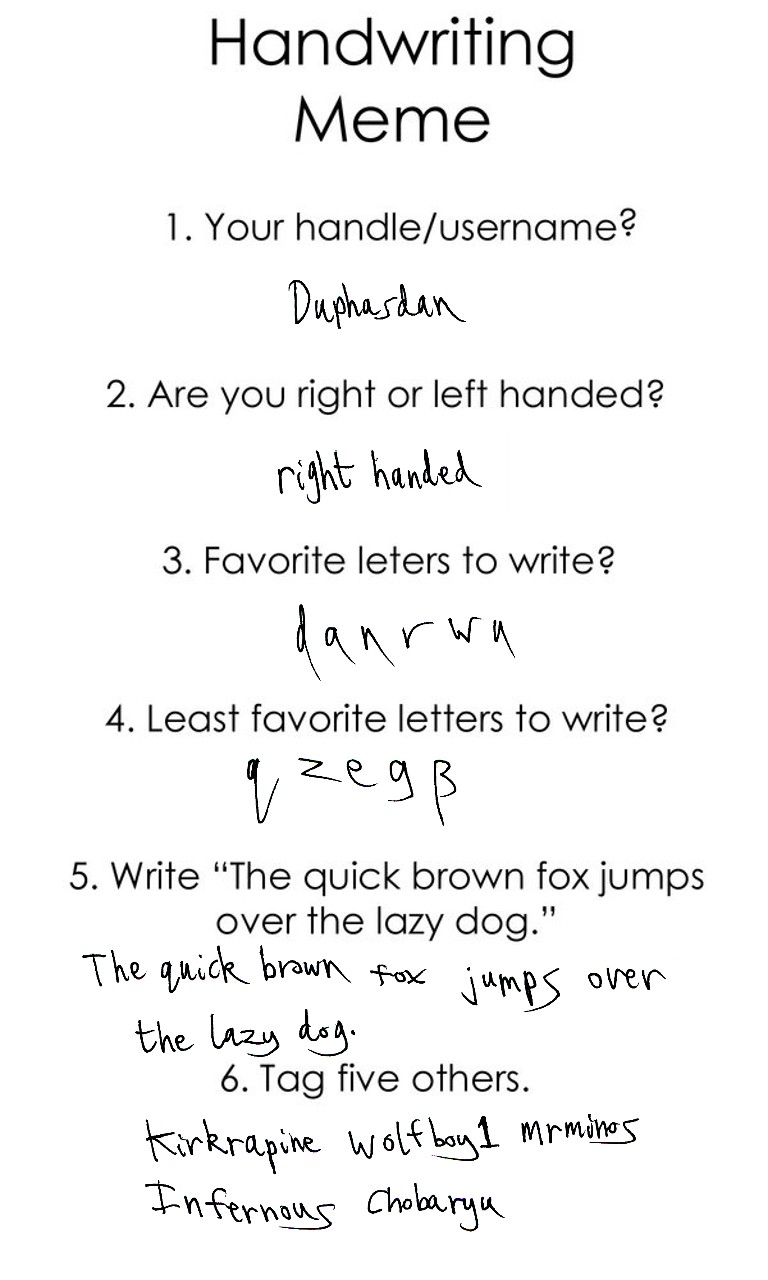 Handwriting
Meme
1. Your handle/username?
Duphasdan
2. Are you right or left handed?
right handed
3. Favorite leters to write?
d a n r w u
4. Least favorite letters to write?
q z e g β
5. Write “The quick brown fox jumps
over the lazy dog.”
The quick brown fox jumps over
the lazy dog.
6. Tag five others.
Kirkrapine wolfboy1 mrminos
Infernous Chobaryu